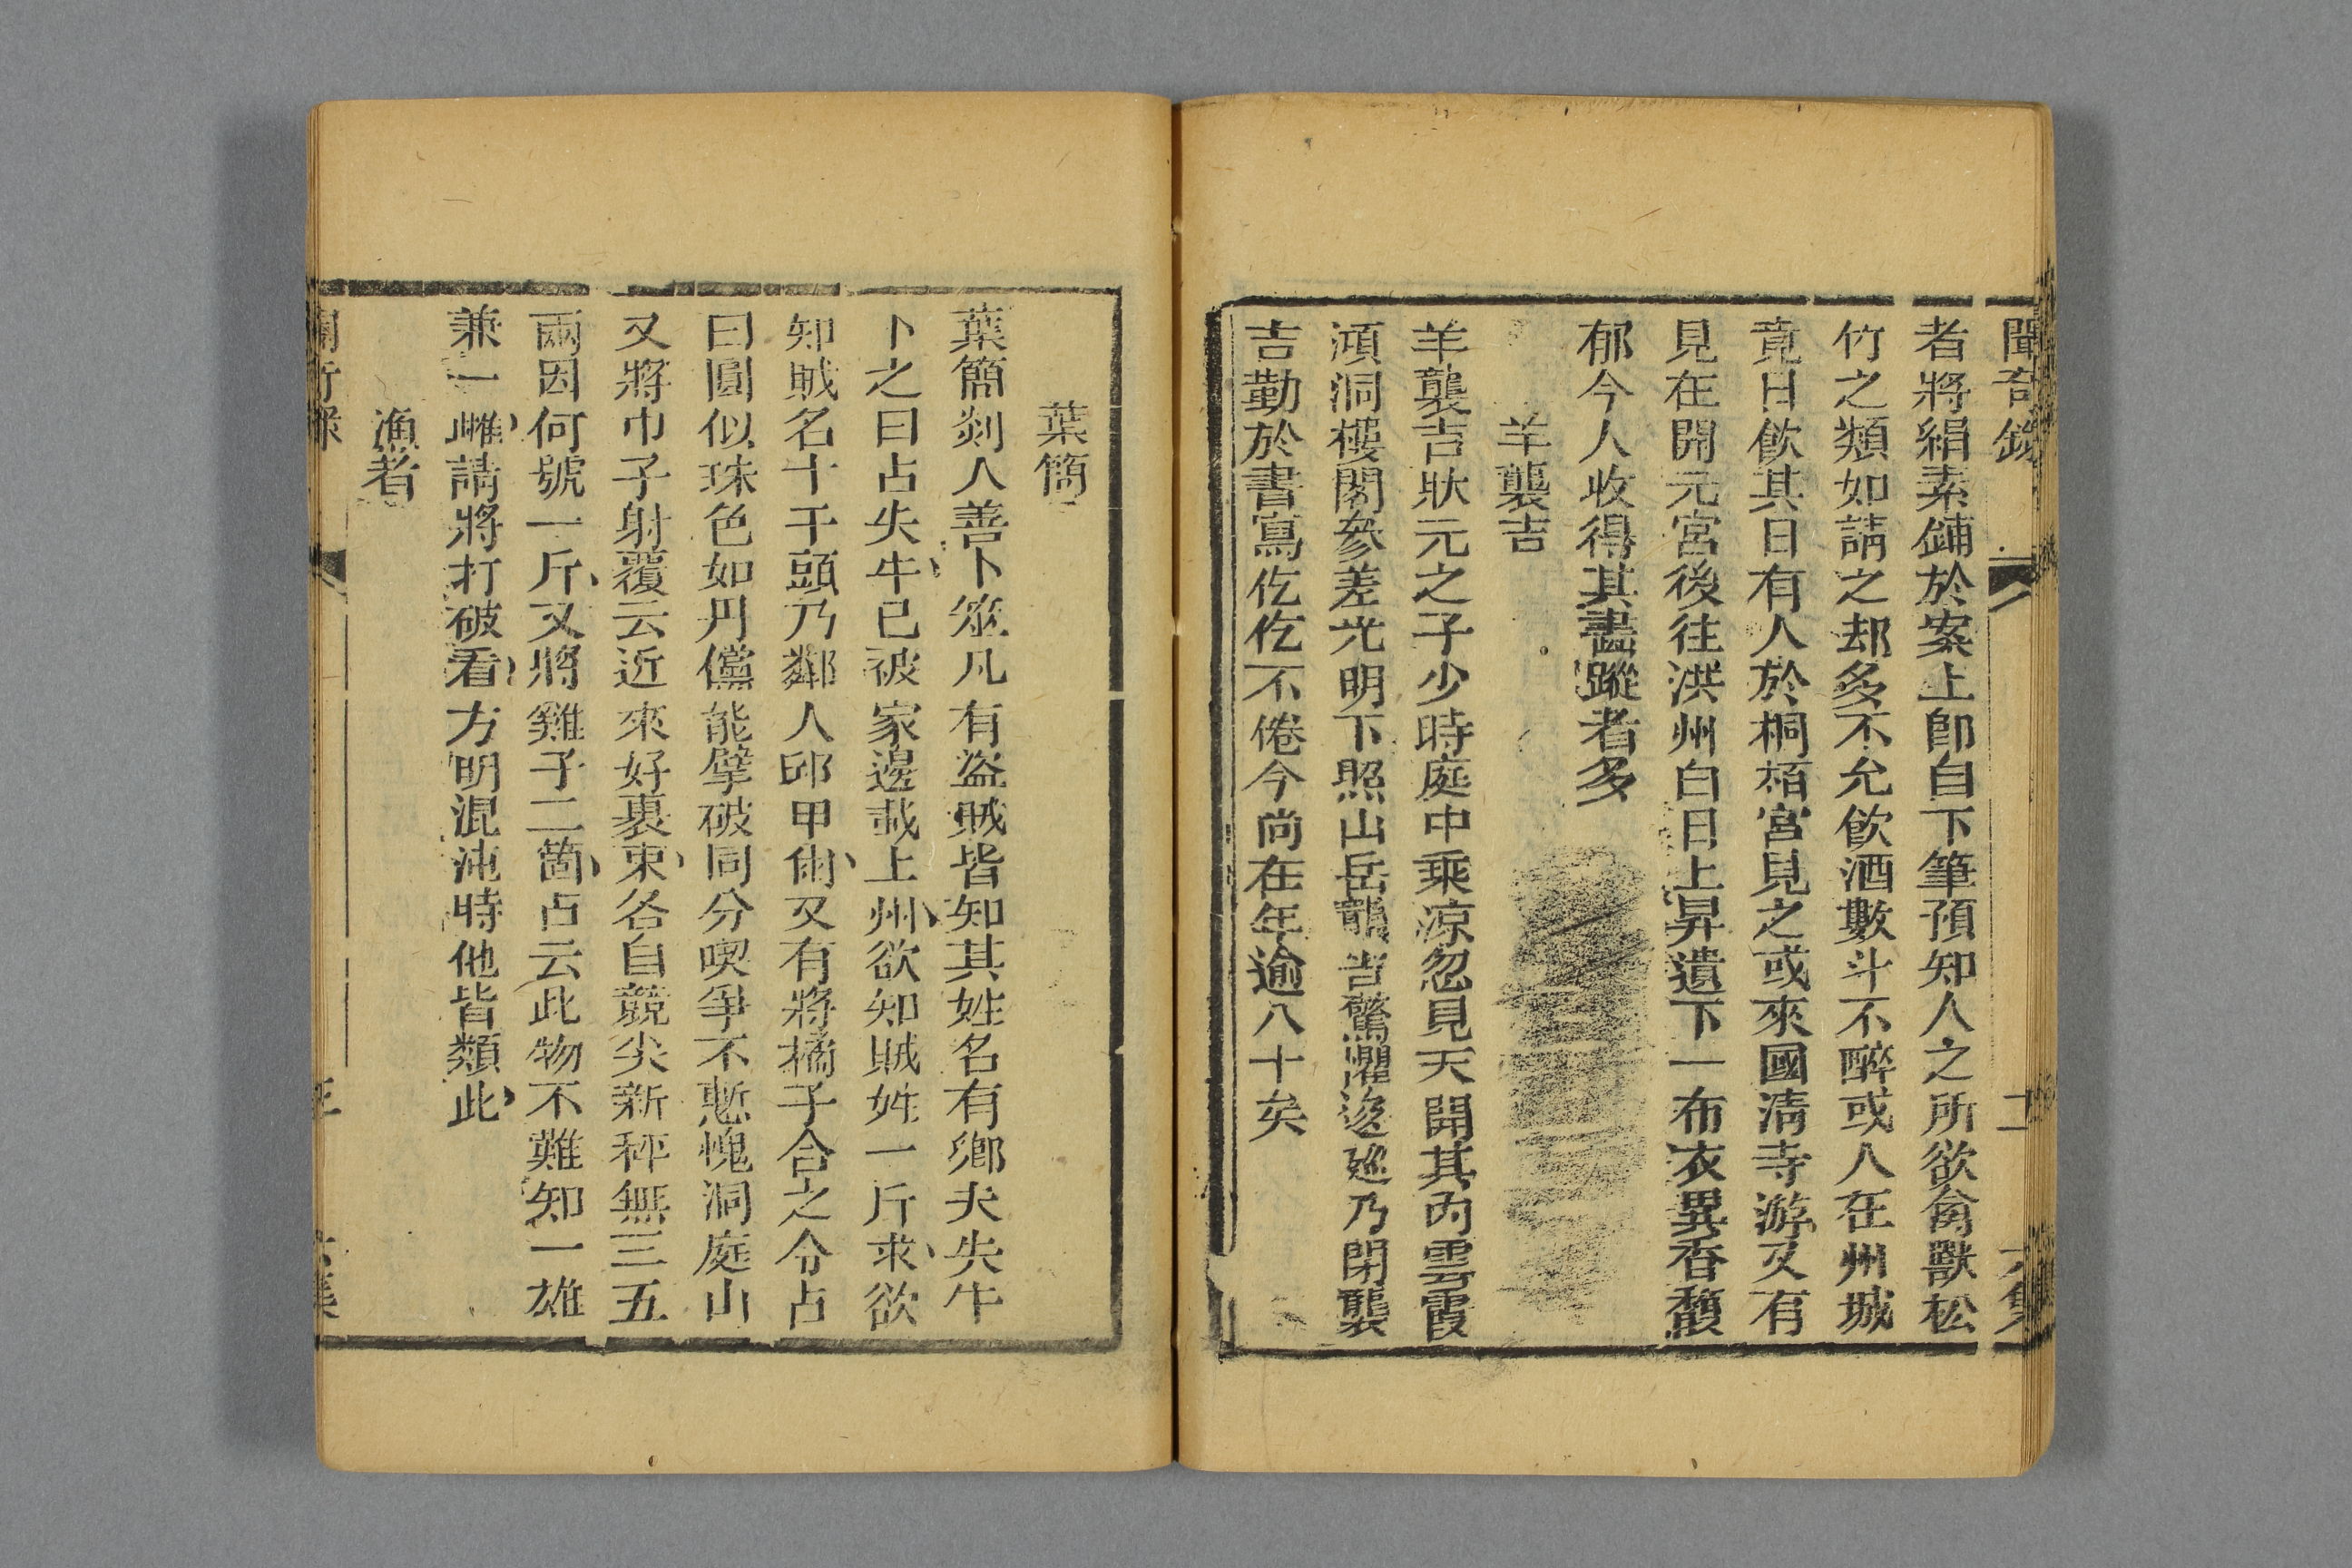 聞奇錄 二 六集
者將絹素鋪於案上卽自下筆預知人之所欲禽獸松
竹之類如請之却多不允飮酒數斗不醉或人在州城
竟日飮其日有人於桐栢宮見之或來國淸寺游又有
見在開元宮後往洪州白日上昇遺下一布衣異香馥
郁今人收得其畵蹤者多
羊襲吉
羊襲吉狀元之子少時庭中乘凉忽見天開其內雲霞
澒洞樓閣參差光明下照山岳襲吉驚懼逡廵乃閉襲
吉勤於書寫仡仡不倦今尚在年逾八十矣
葉簡
葉簡剡人善卜筮凡有盜賊皆知其姓名有鄉夫失牛
卜之曰占失牛已被家邊載上州欲知賊姓一斤求欲
知賊名十干頭乃鄰人邱甲爾又有將橘子合之令占
曰圓似珠色如丹儻能擘破同分喫爭不慙愧洞庭山
又將巾子射覆云近來好裹束各自競尖新秤無三五
兩因何號一斤又將雞子二箇占云此物不難知一雄
兼一雌請將打破看方明混沌時他皆類此
漁者